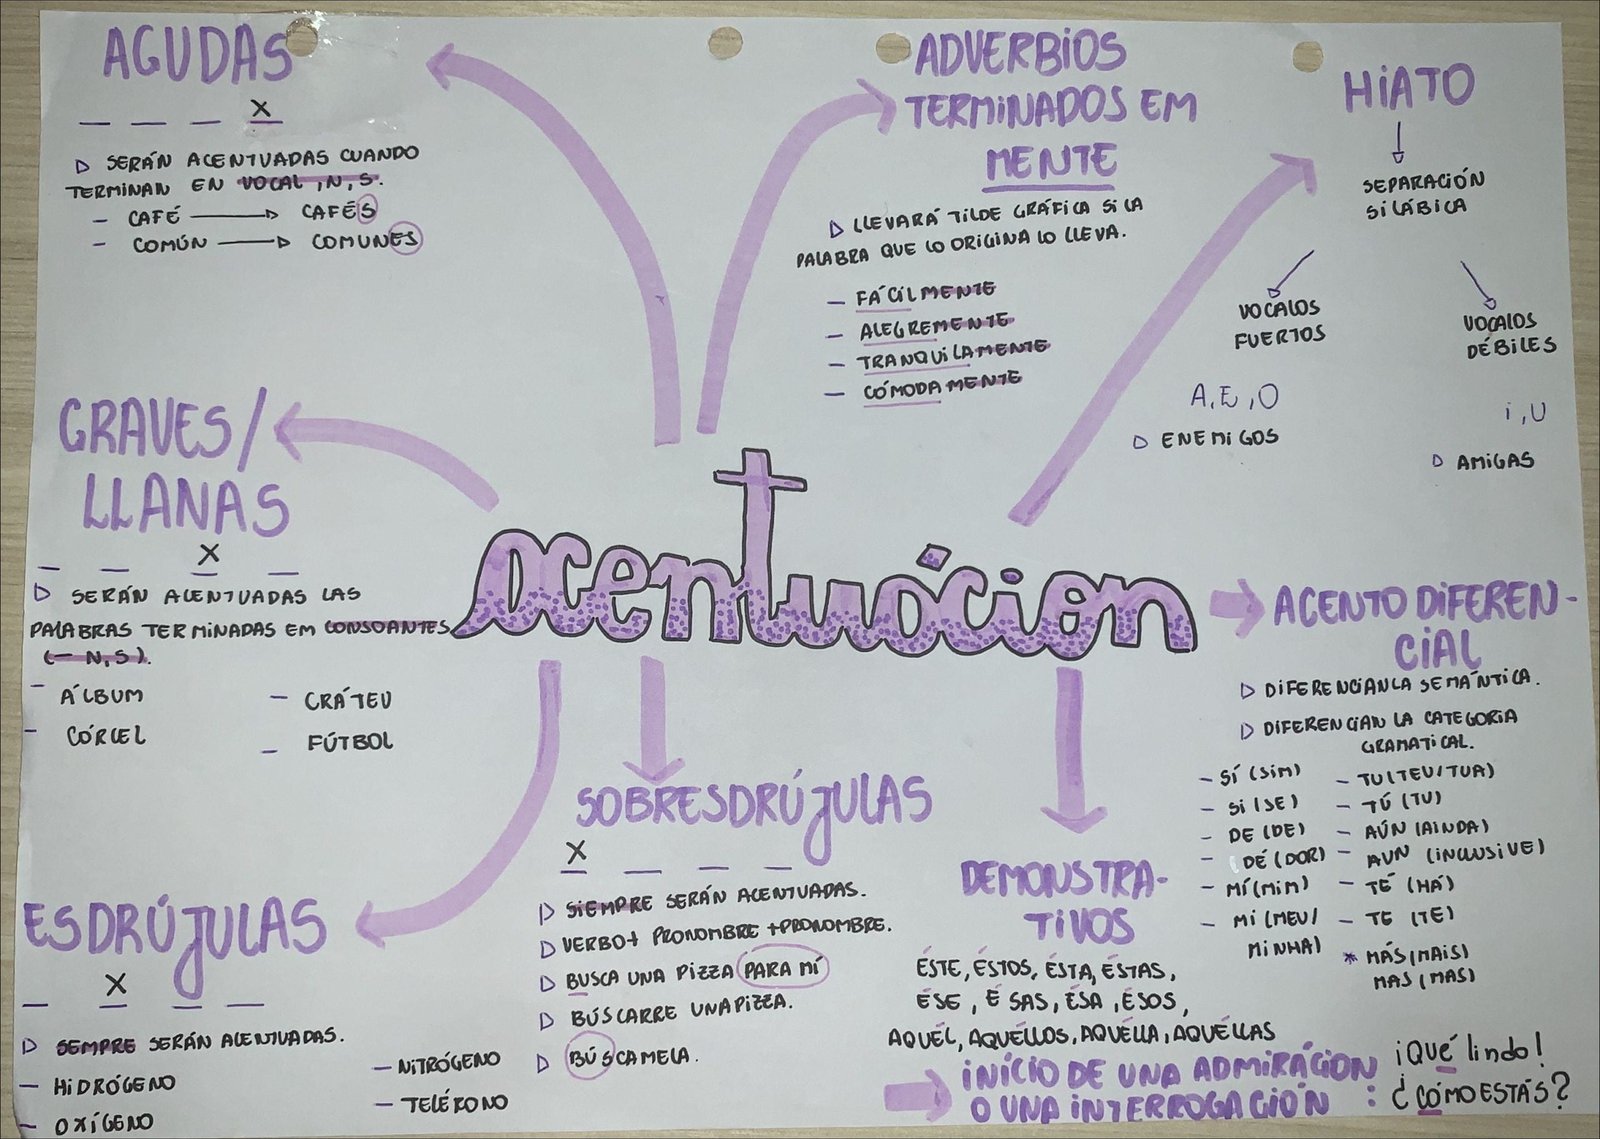 AGUDAS
X
SERÁN ACENTUADAS CUANDO
TERMINAN EN VOCAL, N, S.
- CAFÉ → CAFÉS
- COMÚN → COMUNES
ADVERBIOS
TERMINADOS EM
MENTE
LLEVARÁ TILDE GRÁFICA SI LA
PALABRA QUE LO ORIGINA LO LLEVA.
- FÁCILMENTE
- ALEGREMENTE
- TRANQUILAMENTE
- CÓMODAMENTE
HIATO
SEPARACIÓN
SILÁBICA
VOCALOS
FUERTOS
A, E, O
ENEMIGOS
VOCALOS
DÉBILES
i, U
AMIGAS
GRAVES/
LLANAS
X
SERÁN ACENTUADAS LAS
PALABRAS TERMINADAS EM CONSOANTES
(- N, S).
- ÁLBUM
- CÓRCEL
- CRÁTEU
- FÚTBOL
acentuácion
ACENTO DIFEREN-
CIAL
DIFERENCIAN LA SEMÁNTICA.
DIFERENCIAN LA CATEGORIA
GRAMATICAL.
- SÍ (SIM)
- SI (SE)
- DE (DE)
- DÉ (DOR)
- MÍ (MIM)
- MI (MEU/
MINHA)
- TU (TEU/TUA)
- TÚ (TU)
- AÚN (AINDA)
- AUN (INCLUSIVE)
- TÉ (HÁ)
- TE (TE)
* MÁS (MAIS)
MAS (MAS)
ESDRÚJULAS
X
SEMPRE SERÁN ACENTUADAS.
- HIDRÓGENO
- OXÍGENO
- NITRÓGENO
- TELÉFONO
SOBRESDRÚJULAS
X
SIEMPRE SERÁN ACENTUADAS.
VERBO + PRONOMBRE + PRONOMBRE.
BUSCA UNA PIZZA PARA MÍ
BÚSCARRE UNA PIZZA.
BÚSCAMELA.
DEMONSTRA-
TIVOS
ÉSTE, ÉSTOS, ÉSTA, ÉSTAS,
ÉSE, ÉSAS, ÉSA, ÉSOS,
AQUÉL, AQUÉLLOS, AQUÉLLA, AQUÉLLAS
INÍCIO DE UNA ADMIRÁCION
O UNA INTERROGACIÓN :
¡QUÉ lindo!
¿CÓMO ESTÁS?